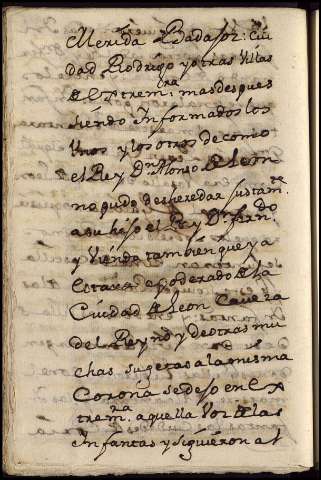 Merida Badajoz: Ciu
dad Rodrigo y otras Villas
de extrem.ra; mas despues
siendo Informados los
Unos y los otros de como
el Rey Dn Alonso de Leon
no pudo desheredar justam.te
a su hijo el Rey Dn fern.do
y Viendo tambien que ya
estava apoderado de la
Ciudad de Leon Caveza
del Reyno y de otras mu
chas sugetas a la misma
Corona se dejo en ex
trem.ra aquella Voz de las
Infantas y siguieron al